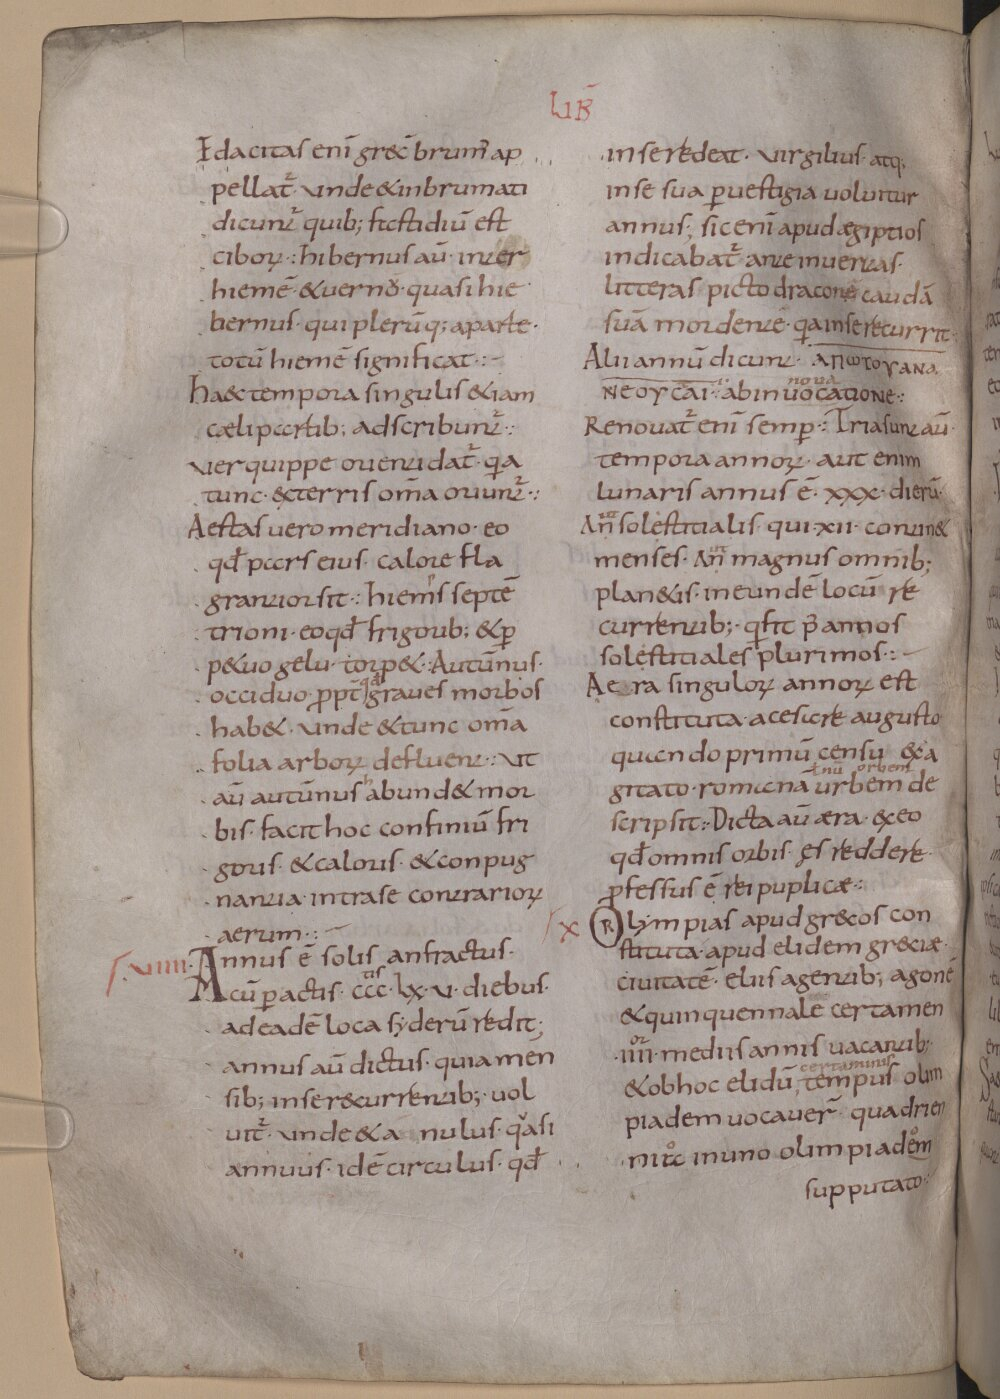 LIB̄
Edacitas enī grec̄ brumā ap
pellat᷑· unde & inbrumati
dicunt᷑ quib; fastidiū est
cibor̄·: hibernus aū· inter
hiemē· & uernū· quasi hie
bernus· qui plerūq; a parte·
totū hiemē significat·:
haec tempora singulis & iam
cæli partib; adscribunt᷑·:
uer quippe orienti dat᷑· q̄a
tunc· ex terris om̄a oriunt᷑·:
Aestas uero meridiano· eo
qđ pars eius· calore fla
grantior sit·: hiem̄s septē
trioni· eo qđ frigorib; & p̄
p&uo gelu· torp&·: Autūnus·
occiduo· ꝓpt̄ graues morbos
hab&· unde & tunc om̄a
folia arbor̄ defluent·: Ut
aū autūnus habund& mor
bis· facit hoc confiniū fri
goris· & caloris· & con pug
nantia intra se contrarior̄
aerum·:
·VIIII· Annus ē solis anfractus·
cū pactis· ccc· lx· v· diebus·
ad eadē loca syderū redit;
annus aū dictus· quia men
sib; in se recurrentib;· uol
uit᷑· unde & a nulus· qͣsi
annuus· idē circulus· qđ
in se redeat· uirgilius· atq;
in se sua puestigia uoluitur
annus; sic enī apud ægiptios
indicabat᷑· ante inuentas·
litteras picto dracone caudā
suā mordente· q̄a in se recurrit·
Alii annū dicunt· ΑΠωΤΟΥΑΝΑ
ΝΕΟΥCΑΙ·: ab innouacatione·:
nova
Renouat᷑ enī semp̄·: Tria sunt aū·
tempora annor̄· aut enim
lunaris annus ē· xxx· dierū·
An̄ solestitialis· qui· xii· contin&
menses· An̄ magnus omnib;
plan&is· in eundē locū re
currentib;· q̄ fit p̄ annos
solestitiales plurimos·:
Aera singulor̄ annor̄ est
constituta· a cesare augusto
quando primū censu & a
gitato· romanā urbem de
orbem
scripsit·: Dicta aū æra· ex eo
qđ omnis orbis· es reddere·
ꝓfessus ē rei puplicæ·:
X Olympias apud grecos con
stituta· apud elidem greciæ·
ciuitatē· eliis agentib; agonē
& quinquennale certamen
·iiii· mediis annis uacantib;·
& ob hoc elidū tempus olim
certaminis
piadem uocauer̄· quadrien
nio in uno olimpiadem
supputato·: